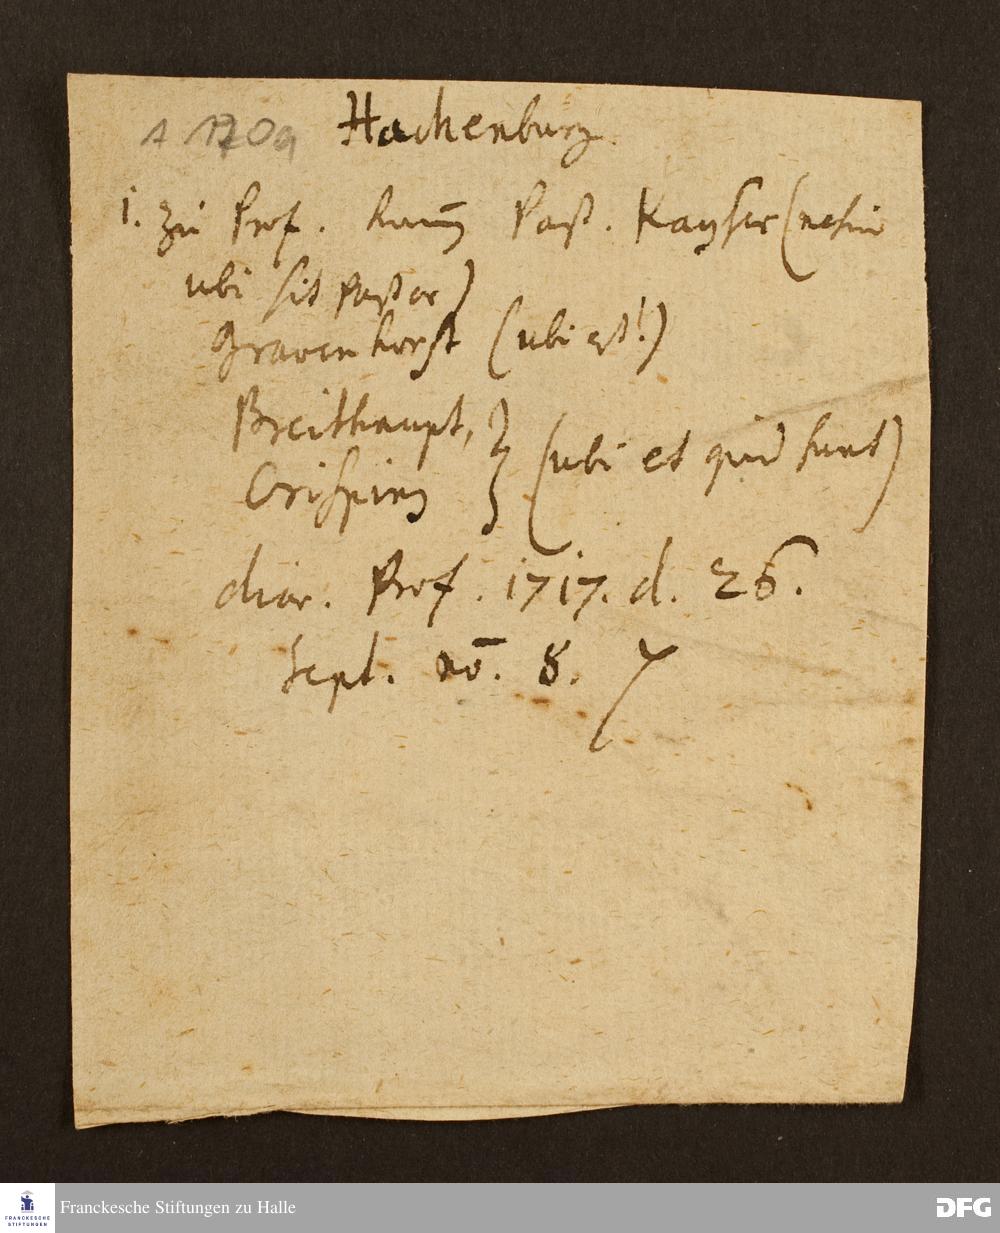 A 170a Hachenburg
1. Zu Prof. kam Past. Kayser (nescio
ubi sit pastor)
Gravenhorst (ubi est!)
Breithaupt, } (ubi et quid sunt)
Crisping
diar. Prof. 1717. d. 26.
Sept. no. 8.
FRANCKESCHE STIFTUNGEN
Franckesche Stiftungen zu Halle
DFG